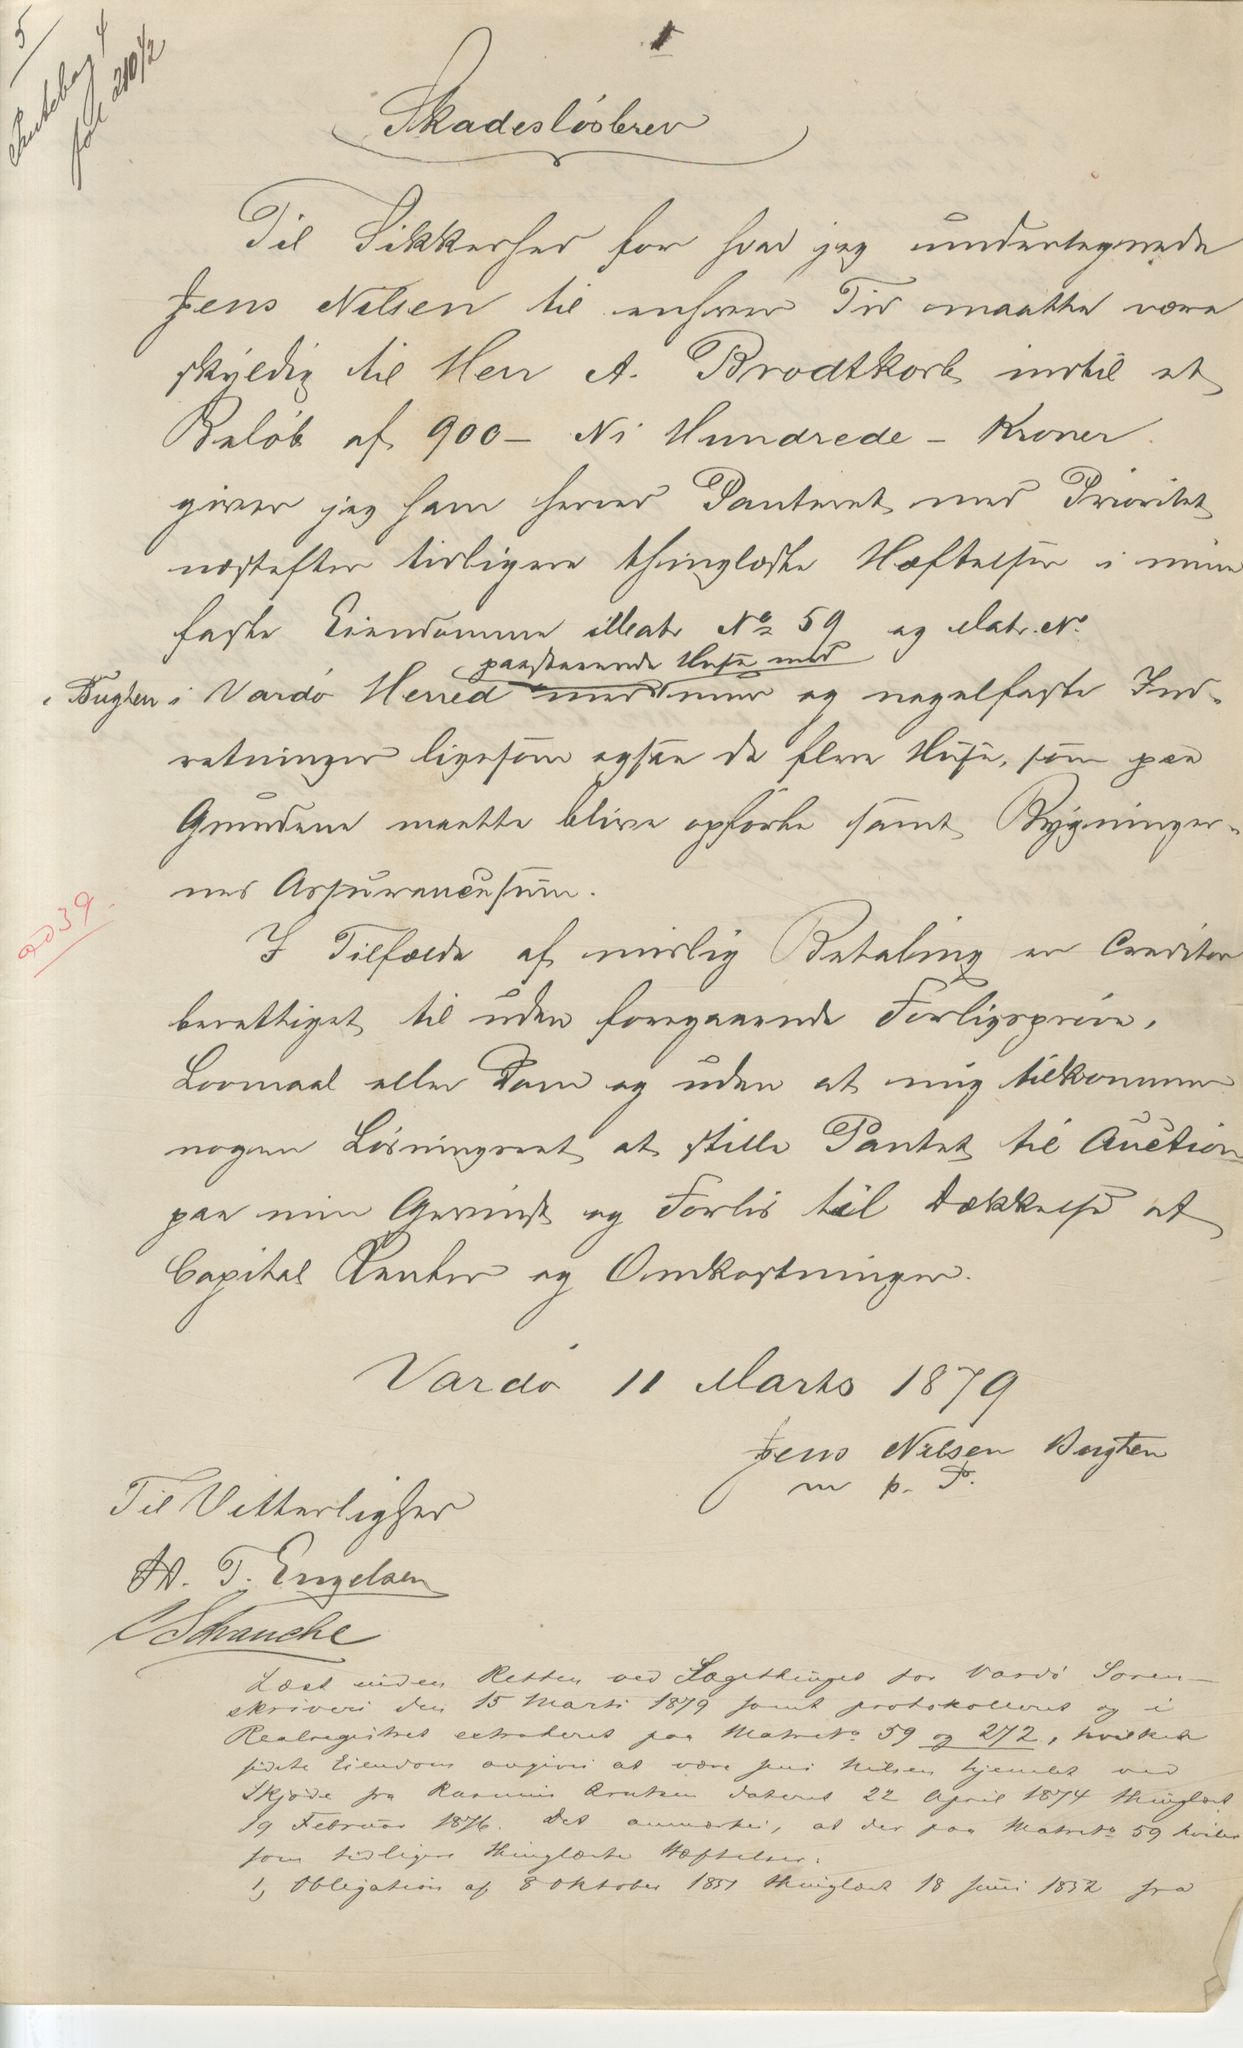 5
Pantebog 4
fol 210/2
1
Skadesløsbrev
Til Sikkerhed for hvad jeg undertegnede
Jens Nilsen til enhver Tid maatte være
skyldig til Herr A. Brodtkorb indtil et
Beløb af 900 – Ni Hundrede – Kroner
giver jeg ham herved Panteret med Prioritet
næstefter tidligere thinglæste Hæftelser i mine
faste Eiendomme Matr No 59 og Matr. No
paastaaende Huse med
i Bugten i Vardø Herred med mur og nagelfaste Ind-
retninger ligesom ogsaa de flere Huse, som paa
Grundene maatte blive opførte samt Bygninger-
nes Assurancesum.
ad 39.
I Tilfælde af mislig Betaling er Creditor
berettiget til uden foregaaende Forligsprøve,
Lovmaal eller Dom og uden at mig tilkommer
nogen Løsningsret at stille Pantet til Auction
paa min Gevinst og Forlis til Dækkelse af
Capital Renter og Omkostninger.
Vardø 11 Marts 1879
Jens Nilsen Bugten
m p. P.
Til Vitterlighed
H. T. Engelsen
C Schanche
Læst inden Retten ved Sagethinget for Vardø Soren-
skriveri den 15 Marts 1879 samt protokolleret og i
Realregistret extraheret paa Matr No 59 og 272, hvilken
sidste Eiendom angives at være Jens Nilsen hjemlet ved
Skjøde fra Rasmus Knutsen dateret 22 April 1874 thinglæst
19 Februar 1876. Det anmærkes, at der paa Matr No 59 hviler
som tidligere thinglæste Hæftelser:
1, Obligation af 8 Oktober 1851 thinglæst 18 Juni 1852 fra